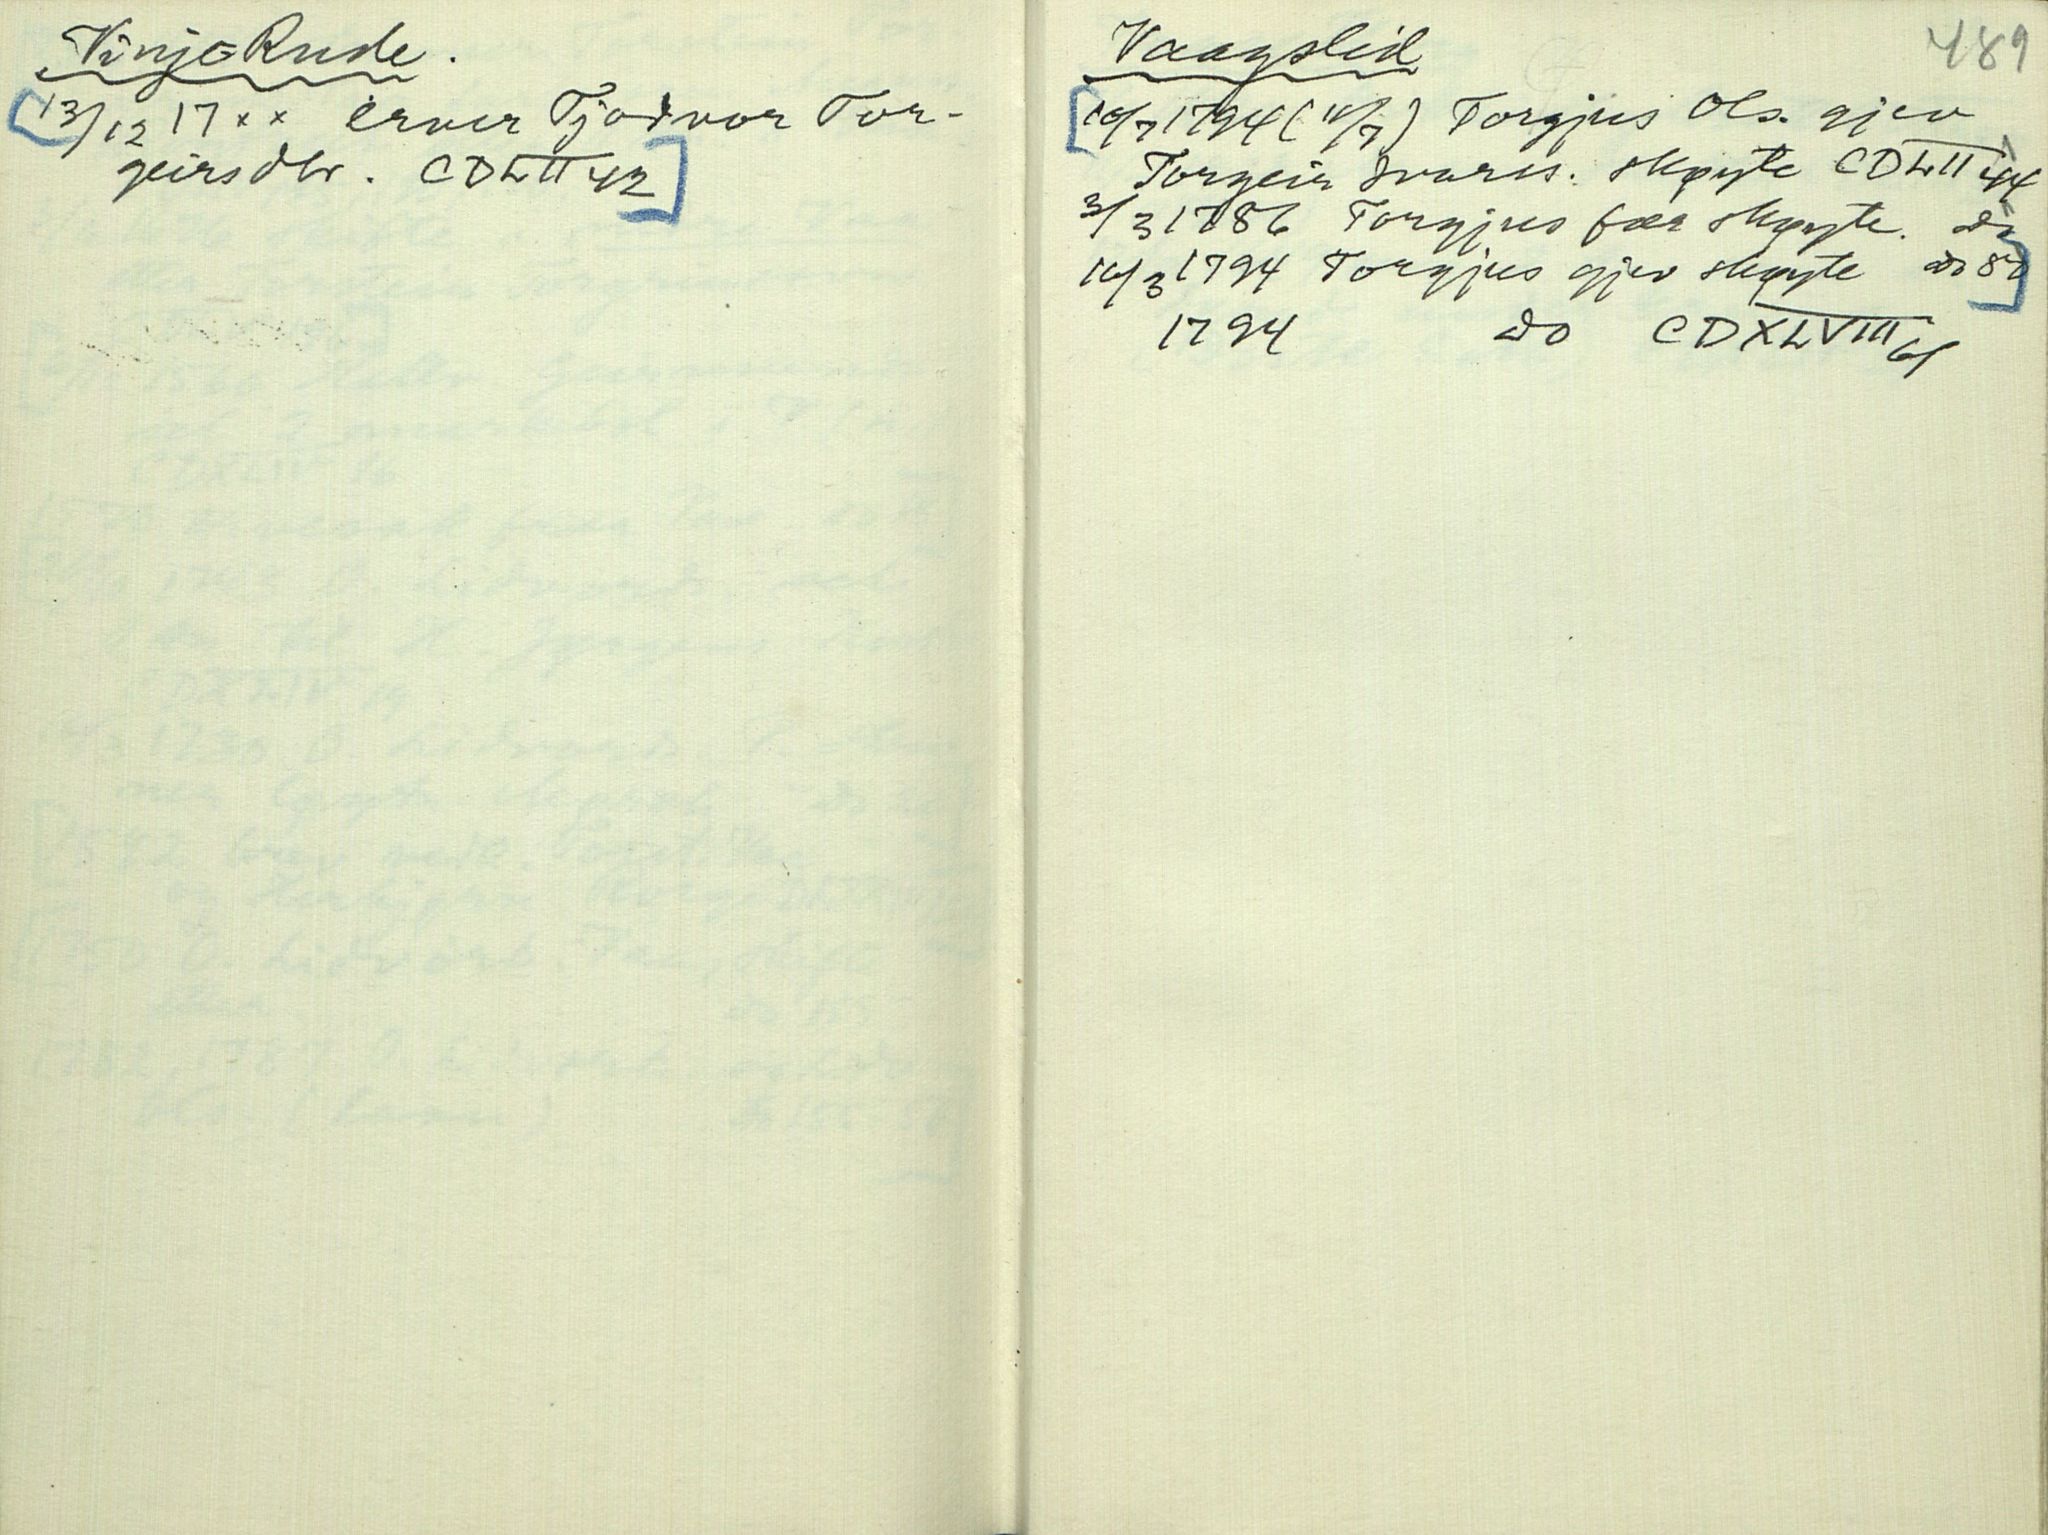 Vinje-Rude.
[13/12 17xx erver Tjodvor Tor-
geirsdtr. CDLII 42]
489
Vaagslid
[16/7 1794 (11/7) Torgjus Ols. gjev
Torgeir Ivars. skøyte CDLII 44
3/3 1786 Torgjus fær skøyte. do
16/3 1794 Torgjus gjev skøyte do 8]
1794 do CDXLVIII 61